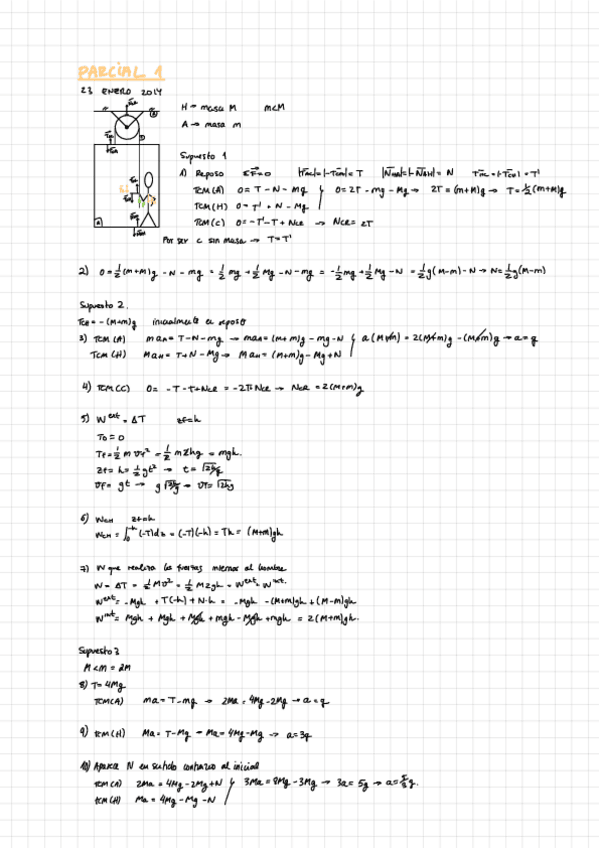 PARCIAL 1
23 ENERO 2014
H → masa M m<M
A → masa m
Supuesto 1
1) Reposo ΣF=0 |TAC|=|-TCA|=T |NHA|=|-NAH|=N THC=|-TCH|=T'
TCM(A) 0= T-N-mg
0=2T-mg-Mg → 2T=(m+M)g → T=½(m+M)g
TCM(H) 0=T'+N-Mg
TCM(C) 0=-T'-T+NCR → NCR=2T
Por ser C sin masa → T=T'
2) 0=½(m+M)g -N-mg = ½mg+½Mg-N-mg = -½mg+½Mg-N = ½g(M-m)-N → N=½g(M-m)
Supuesto 2.
TCH=-(M+m)g inicialmente en reposo
3) TCM(A) maA=T-N-mg → maA=(M+m)g-mg-N
a(M+m)=2(M+m)g-(M+m)g → a=g
TCM(H) MaH=T+N-Mg → MaH=(M+m)g-Mg+N
4) TCM(C) 0= -T-T+NCR = -2T+NCR → NCR=2(M+m)g
5) W^ext = ΔT zf=h
T0=0
Tf=½mvf²=½m2hg=mgh.
zf=h=½gt² → t=√2h/g
vf=gt → g√2h/g → vf=√2hg
6) WCH
WCH=∫₀^-h(-T)dz=(-T)(-h)=Th=(M+m)gh
7) W que realiza las fuerzas internas al hombre
W=ΔT=½Mv²=½M2gh=W^ext+W^int.
W^ext=-Mgh+T(-h)+N·h=-Mgh-(M+m)gh+(M-m)gh
W^int=Mgh+Mgh+Mgh+mgh-Mgh+mgh=2(M+m)gh.
Supuesto 3
M<m=2M
8) T=4Mg
TCM(A) ma=T-mg → 2Ma=4Mg-2Mg → a=g
9) TCM(H) Ma=T-Mg → Ma=4Mg-Mg → a=3g
10) Aparece N en sentido contrario al inicial
TCM(A) 2Ma=4Mg-2Mg+N
3Ma=8Mg-3Mg → 3a=5g → a=5/3g.
TCM(H) Ma=4Mg-Mg-N